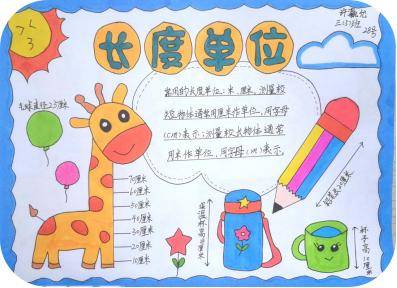 长度单位
三(5)班
28号
气球直径25厘米
常用的长度单位:米、厘米。测量较
短物体通常用厘米作单位,用字母
(cm)表示;测量较长物体通常
用米作单位,用字母(m)表示。
70厘米
60厘米
50厘米
40厘米
30厘米
20厘米
10厘米
杯子高10厘米